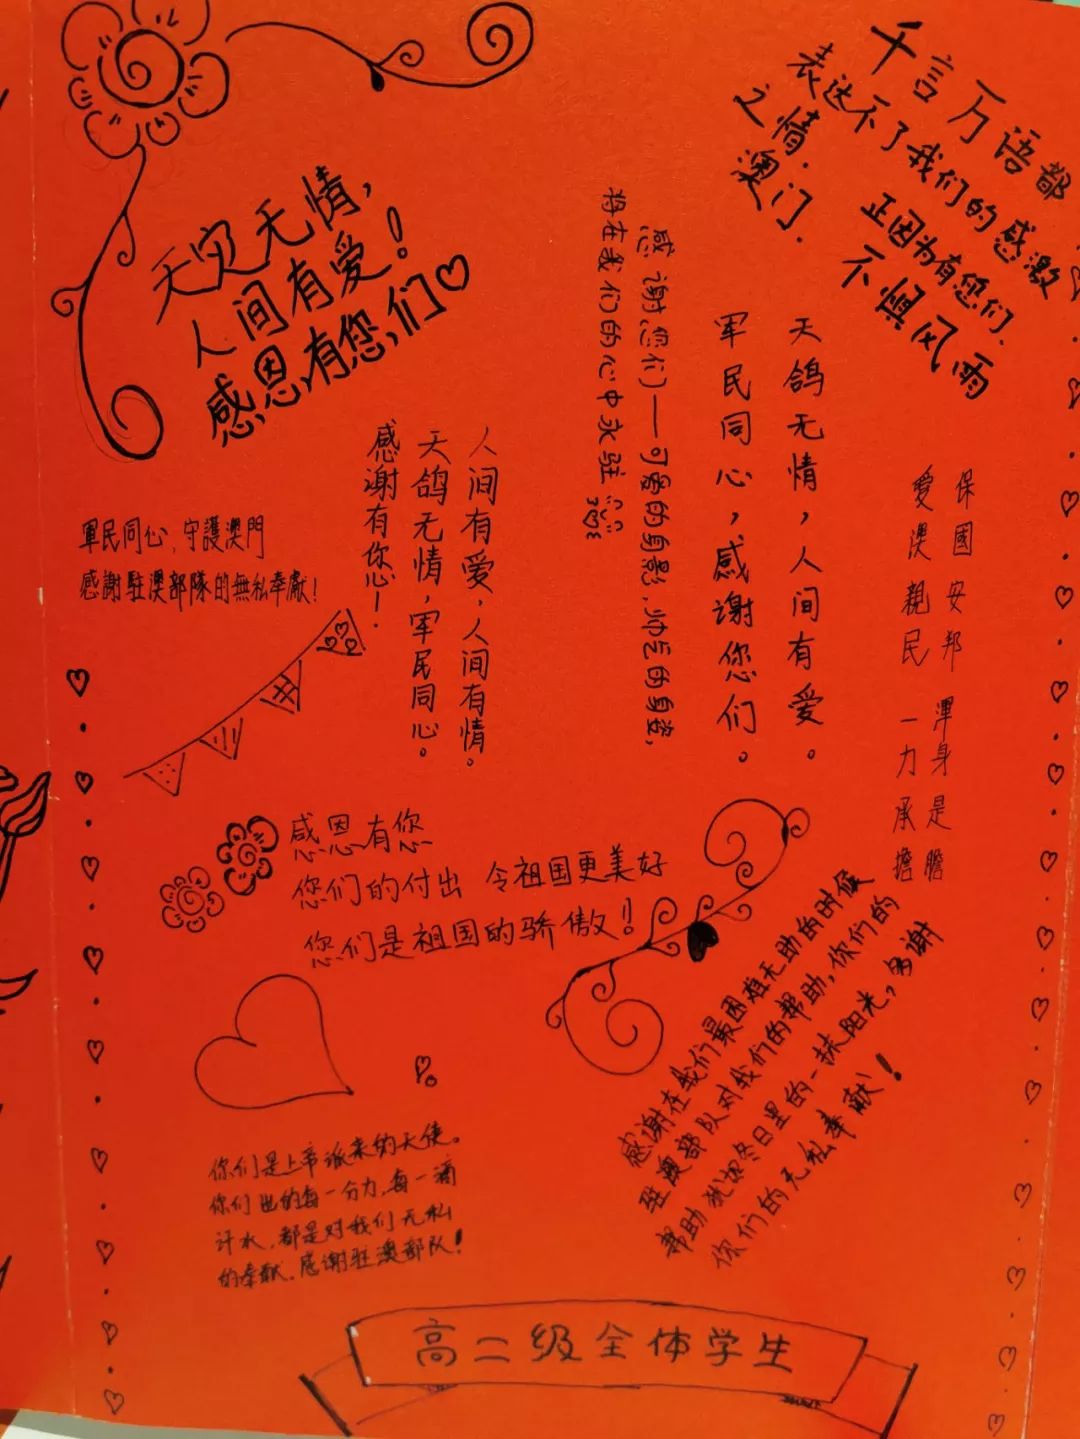 天灾无情，
人间有爱！
感恩有您们
千言万语都
表达不了我们的感激
之情．
正因为有您们．
澳门．
不惧风雨
感谢您们——可爱的身影、帅气的身姿，
将在我们的心中永驻
天鸽无情，人间有爱。
軍民同心，感谢您们。
保國安邦 渾身是膽
愛澳親民 一力承擔
軍民同心，守護澳門
感謝駐澳部隊的無私奉獻！
人间有爱，人间有情。
天鸽无情，军民同心。
感谢有你心！
感恩有您
您们的付出 令祖国更美好
您们是祖国的骄傲！
感谢在我们最困难无助的时候
驻澳部队对我们的帮助，你们的
帮助犹如冬日里的一抹阳光，多谢
你们的无私奉献！
你们是上帝派来的天使。
你们出的每一分力，每一滴
汗水，都是对我们无私
的奉献。感谢驻澳部队！
高二级全体学生